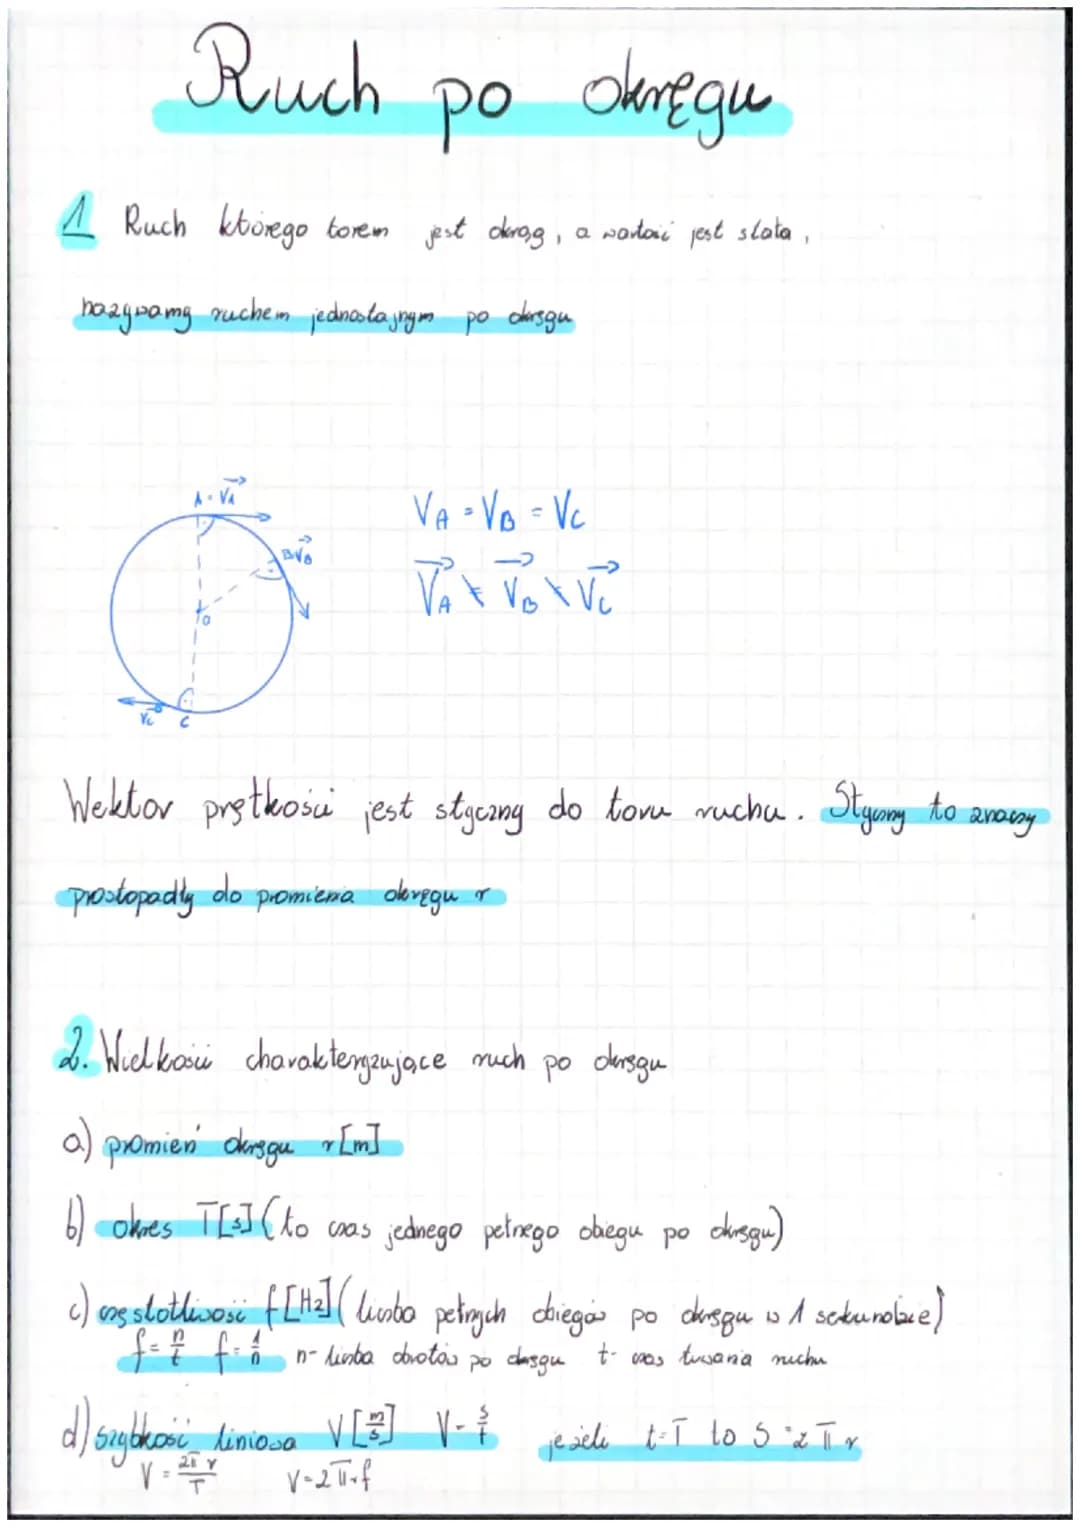 Ruch po okręgu
1 Ruch którego torem jest okrąg, a wartość jest stała,
nazywamy ruchem jednostajnym po okręgu
A = V⃗A
B V⃗B
O
V⃗C C
VA = VB = VC
V⃗A ≠ V⃗B ≠ V⃗C
Wektor prętkości jest styczny do toru ruchu. Styczny to znaczy
prostopadły do promienia okręgu r
2. Wielkości charakteryzujące ruch po okręgu
a) promień okręgu r [m]
b) okres T[s] (to czas jednego pełnego obiegu po okręgu)
c) częstotliwość f [Hz] (liczba pełnych obiegów po okręgu w 1 sekundzie)
f = n/t f = 1/n n- liczba obrotów po okręgu t- czas trwania ruchu
d) szybkość liniowa V [m/s] V = s/t jeżeli t = T to S = 2πr
V = 2πr/T V = 2πrf